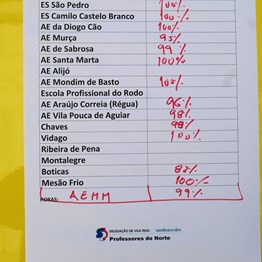 ES São Pedro 100%
ES Camilo Castelo Branco 100%
AE da Diogo Cão 100%
AE Murça 95%
AE de Sabrosa 99%
AE Santa Marta 100%
AE Alijó
AE Mondim de Basto 100%
Escola Profissional do Rodo
AE Araújo Correia (Régua) 96%
AE Vila Pouca de Aguiar 98%
Chaves 98%
Vidago 100%
Ribeira de Pena
Montalegre
Boticas 82%
Mesão Frio 100%
HORAS: AEMM 99%
DELEGAÇÃO DE VILA REAL
Professores do Norte